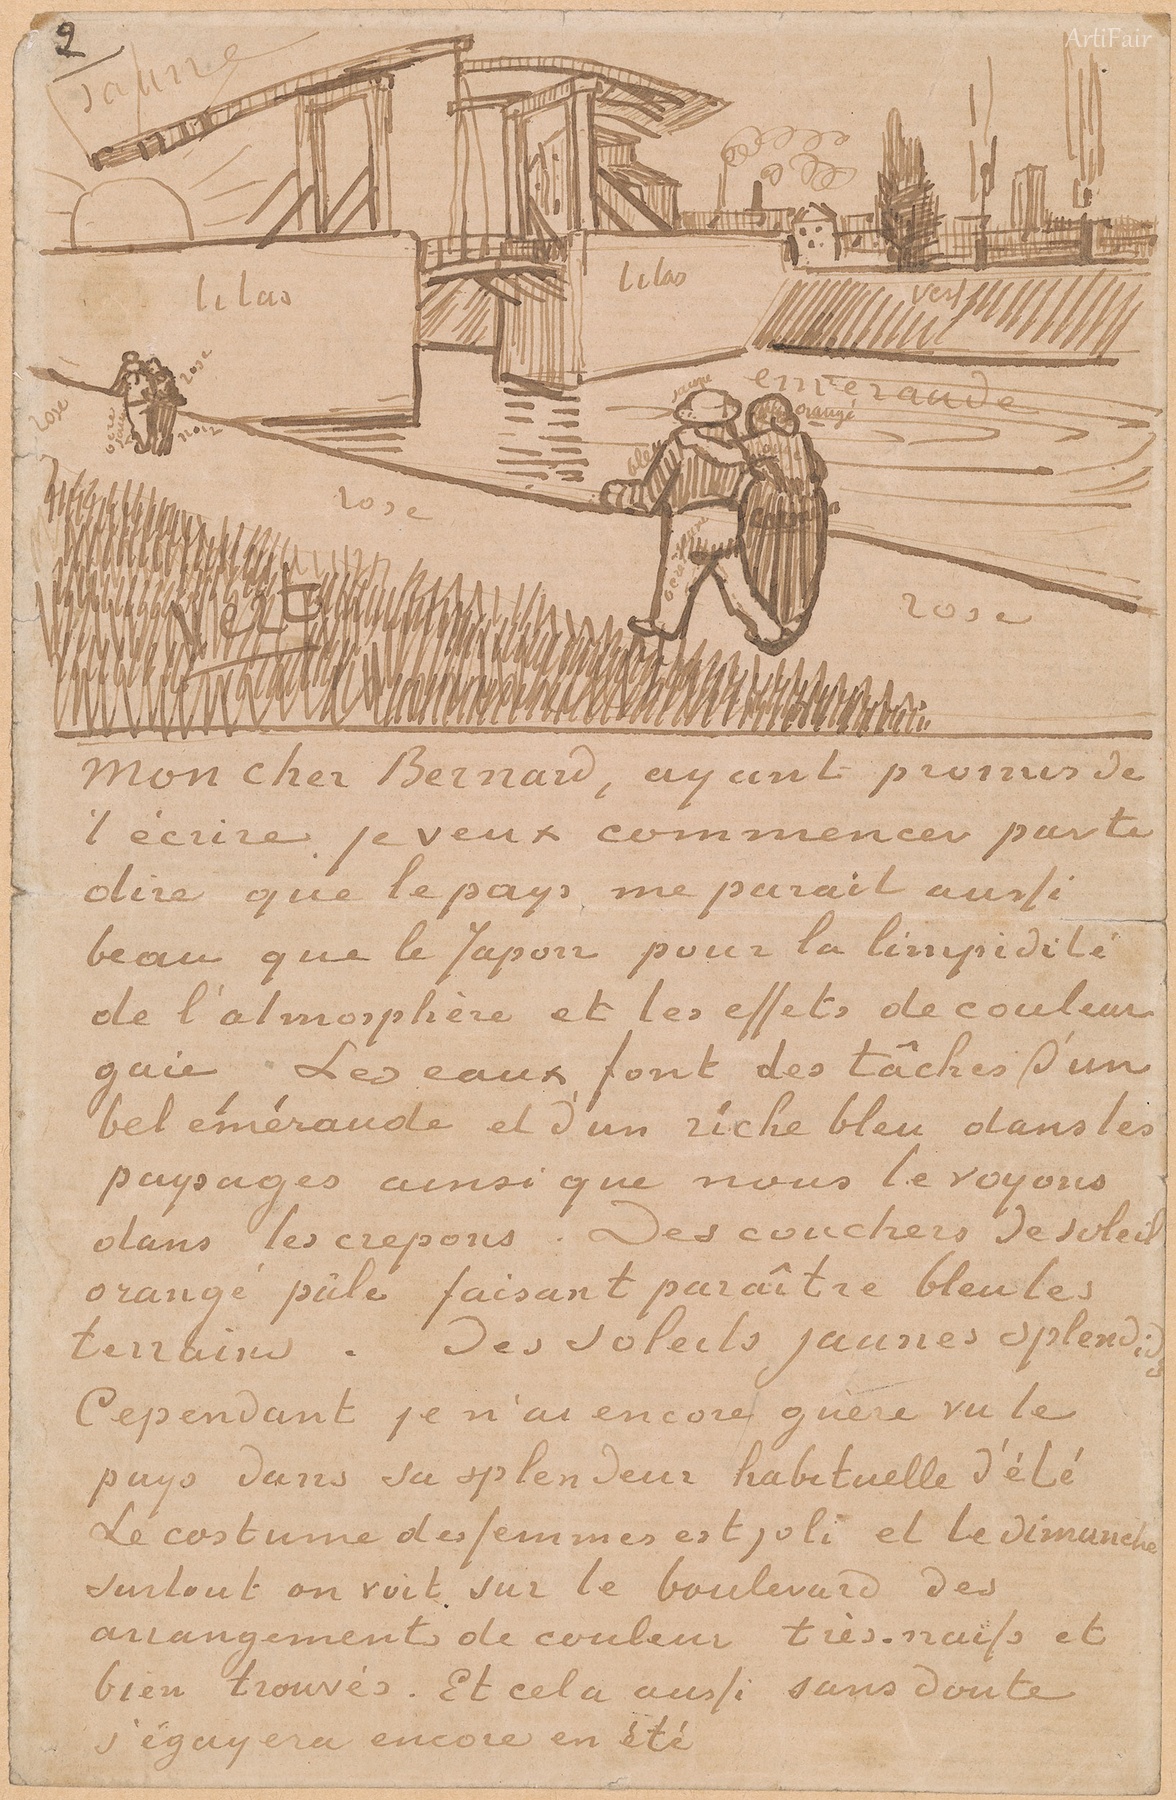 2
ArtiFair
jaune
lilas
lilas
vert
rose
rose
noir
rose
emeraude
jaune
orangé
bleu
rose
jaune
vert
rose
Mon cher Bernard, ayant promis de
t'écrire je veux commencer par te
dire que le pays me parait aussi
beau que le Japon pour la limpidité
de l'atmosphère et les effets de couleur
gaie Les eaux font des tâches d'un
bel éméraude et d'un riche bleu dans les
paysages ainsi que nous le voyons
dans les crepons. Des couchers de soleil
orangé pâle faisant paraître bleu les
terrains. Des soleils jaunes splendides
Cependant je n'ai encore guère vu le
pays dans sa splendeur habituelle d'été
Le costume des femmes est joli et le dimanche
surtout on voit sur le boulevard des
arrangements de couleur très-naifs et
bien trouvés. Et cela aussi sans doute
s'égayera encore en été